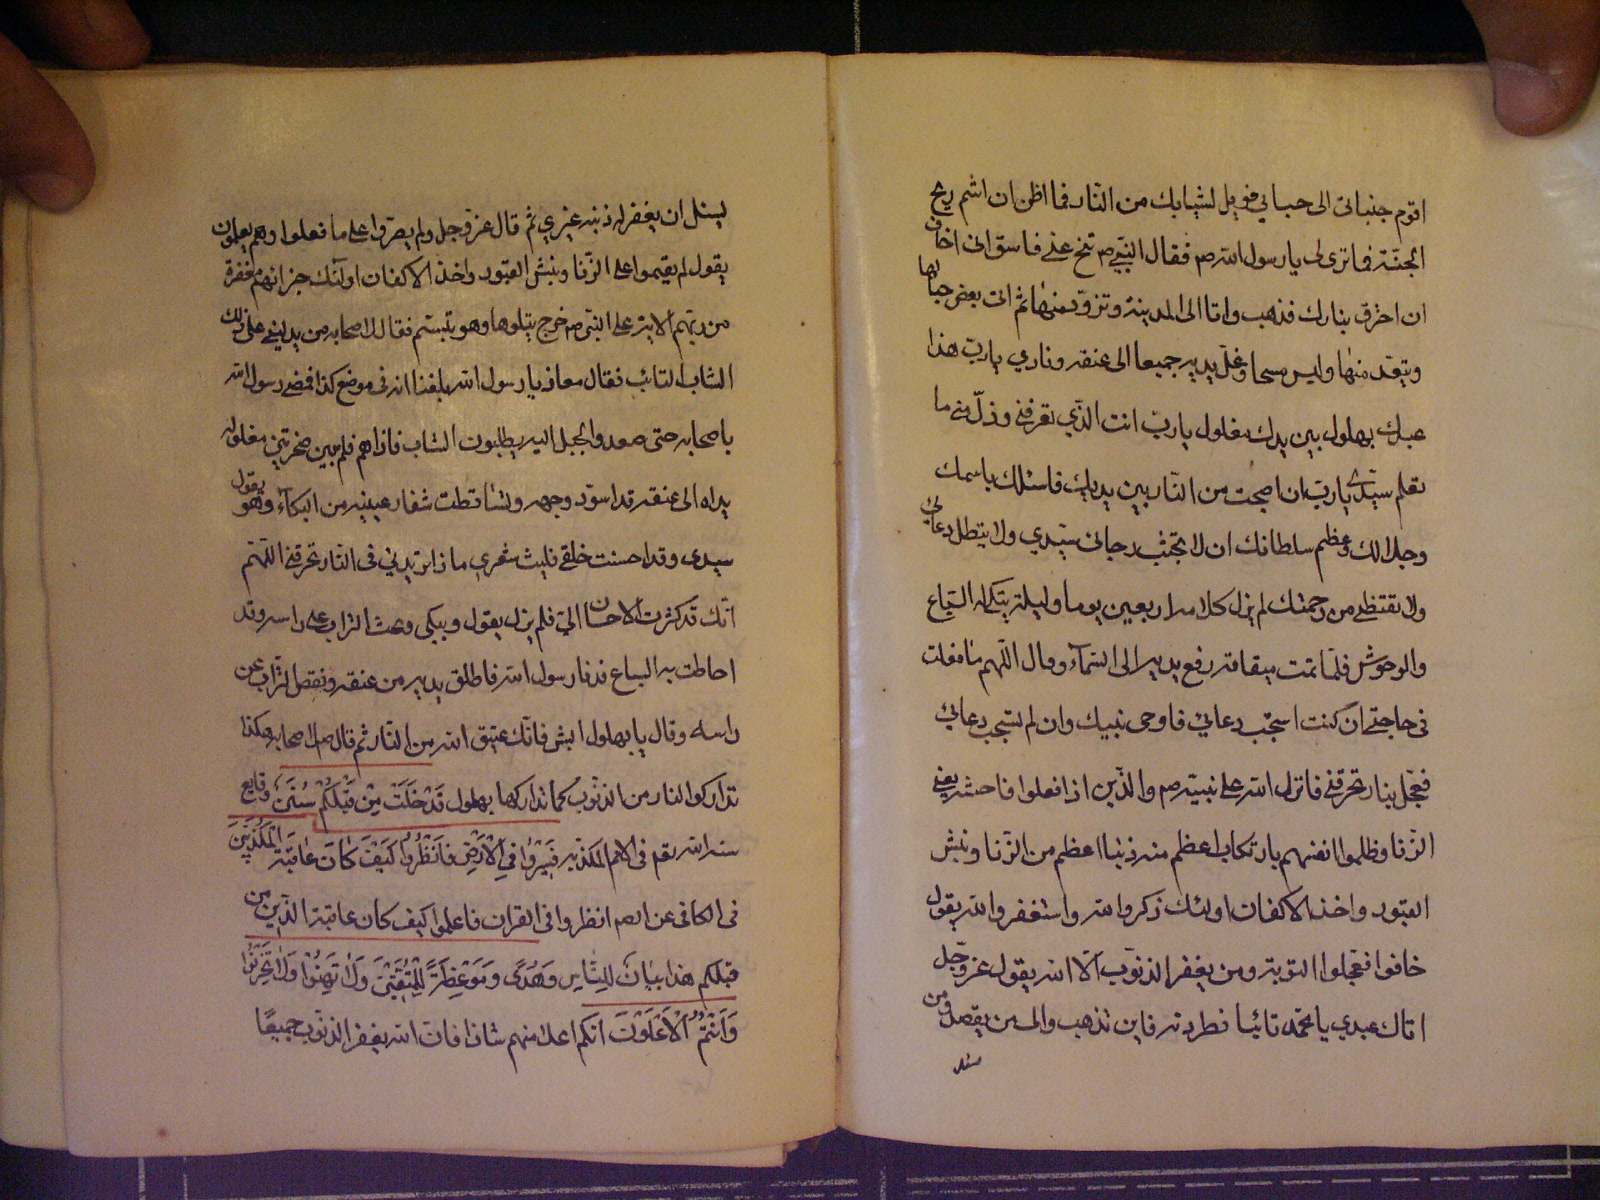 اقوم جنباتى الى حساني فويل لشبابك من النار فما اظن ان اشم ريح
الجنّة فما ترى لى يا رسول الله ص فقال النبي ص تنح عني فاسق انى اخاف
ان احترق بنارك فذهب واتا الى المدينة وتزوّد منها ثم اتى بعض جبالها
وتعبد منها ولبس مسحا وغلّ يديه جميعا الى عنقه ونادي يا ربّ هذا
عبدك بهلول بين يديك مغلول يا ربّ انت الذّي تعرفني وزلّ مني ما
تعلم سيدي يا ربّ ان اصبحت من النّا بين يديك فاسئلك باسمك
وجلالك وعظيم سلطانك ان لا تخيّب رجائى سيّدي ولا تبطل دعائي
ولا تقنطني من رحمتك لم يزل كلامه اربعين يوما وليلة يبكي له السباع
والوحوش فلمّا تمت ميقاته رفع يديه الى السّماء وقال اللّهم ما فعلت
في حاجتي ان كنت استجب دعائي فاوحى نبيك وان لم تستجب دعائي
فعجّل بنار تحرقني فانزل الله على نبيّه ص والذّين اذا فعلوا فاحشة يعني
الزّنا وظلموا انفسهم بارتكاب اعظم منه ذنبا اعظم من الزّنا ونبش
القبور واخذ الاكفان اولئك ذكروا الله واستغفروا الله يقول
خافوا فعجلوا التوبة ومن يغفر الذنوب الّا الله يقول عزوجلّ
اتاك عبدي يا محمّد تائبا فطردته فاين تذهب والى من يقصد ومن
يسئل
يسئل ان يغفر له ذنبه غيري ثم قال عزوجل ولم يصرّوا على ما فعلوا وهم يعلمون
يقول لم يقيموا على الزّنا ونبش القبور واخذ الاكفان اولئك جزائهم مغفرة
من ربّهم الاية على النبي ص خرج يتلوها وهو يتبسّم فقال لاصحابه من يدلني على ذلك
الشاب التائب فقال معاذ يا رسول الله بلغنا انه فى موضع كذا فمضى رسول الله
باصحابه حتى صعدوا الجبل اليه يطلبون الشاب فاذا هم بين صخرتين مغلولة
يداه الى عنقه قد اسوّد وجهه وتساقطت شفار عينيه من البكاء وهو يقول
سيدى وقد احسنت خلقي فليت شعري ماذا تريد بي فى النّار تحرقني اللّهم
انّك قد كثرت الاحسان اليّ فلم يزل يقول ويبكى وحث التراب على راسه وقد
احاطت به السباع فدنا رسول الله فاطلق يديه من عنقه ونفض التراب عن
راسه وقال يا بهلول ابشر فانّك عتيق الله من النّار ثم قال ص لاصحابه هكذا
تداركوا النار من الذنوب كما تداركها بهلول قَدْ خَلَتْ مِنْ قَبْلِكُمْ سُنَنٌ وقايع
سنه الله تعم فى الامم المكذبة فَسِيرُوا فِي الْاَرْضِ فَانْظُرُوا كَيْفَ كَانَ عَاقِبَةُ الْمُكَذِّبِينَ
فى الكافى عن الصم انظروا فى القران فاعلموا كيف كان عاقبة الذّين من
قبلكم هذا بَيَانٌ لِلنَّاسِ وَهُدًى وَمَوْعِظَةٌ لِلْمُتَّقِينَ وَلَا تَهِنُوا وَلَا تَحْزَنُوا
وَاَنْتُمُ الْاَعْلَوْنَ انكم اعلى منهم شانا فان الله يغفر الذنوب جميعًا